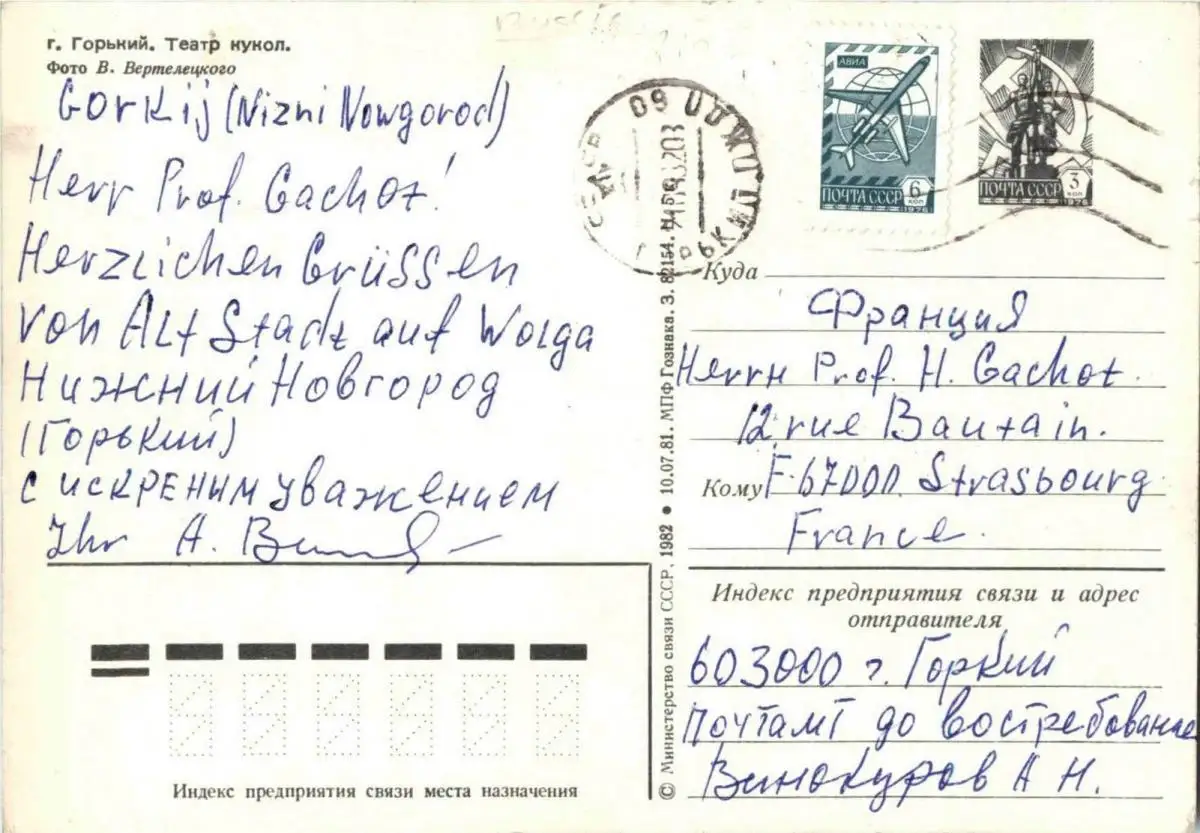 г. Горький. Театр кукол.
Фото В. Вертелецкого
Gorkij (Nizni Nowgorod)
Herr Prof. Gachot!
Herzlichen Grüssen
von Alt Stadt auf Wolga
Нижний Новгород
(Горький)
с искреным уважением
Ihr A.
АВИА
ПОЧТА СССР 6 КОП
1976
ПОЧТА СССР 3 КОП
1976
Куда
Франция
Herrн Prof. H. Gachot.
12 rue Bautain.
Кому F-67000. Strasbourg
France.
Индекс предприятия связи и адрес
отправителя
603000 г. Горкий
Почтамт до востребование
Винокуров А Н.
Индекс предприятия связи места назначения
© Министерство связи СССР, 1982 • 10.07.81. МПФ Гознака. З. 82154. Ц. 5 к.